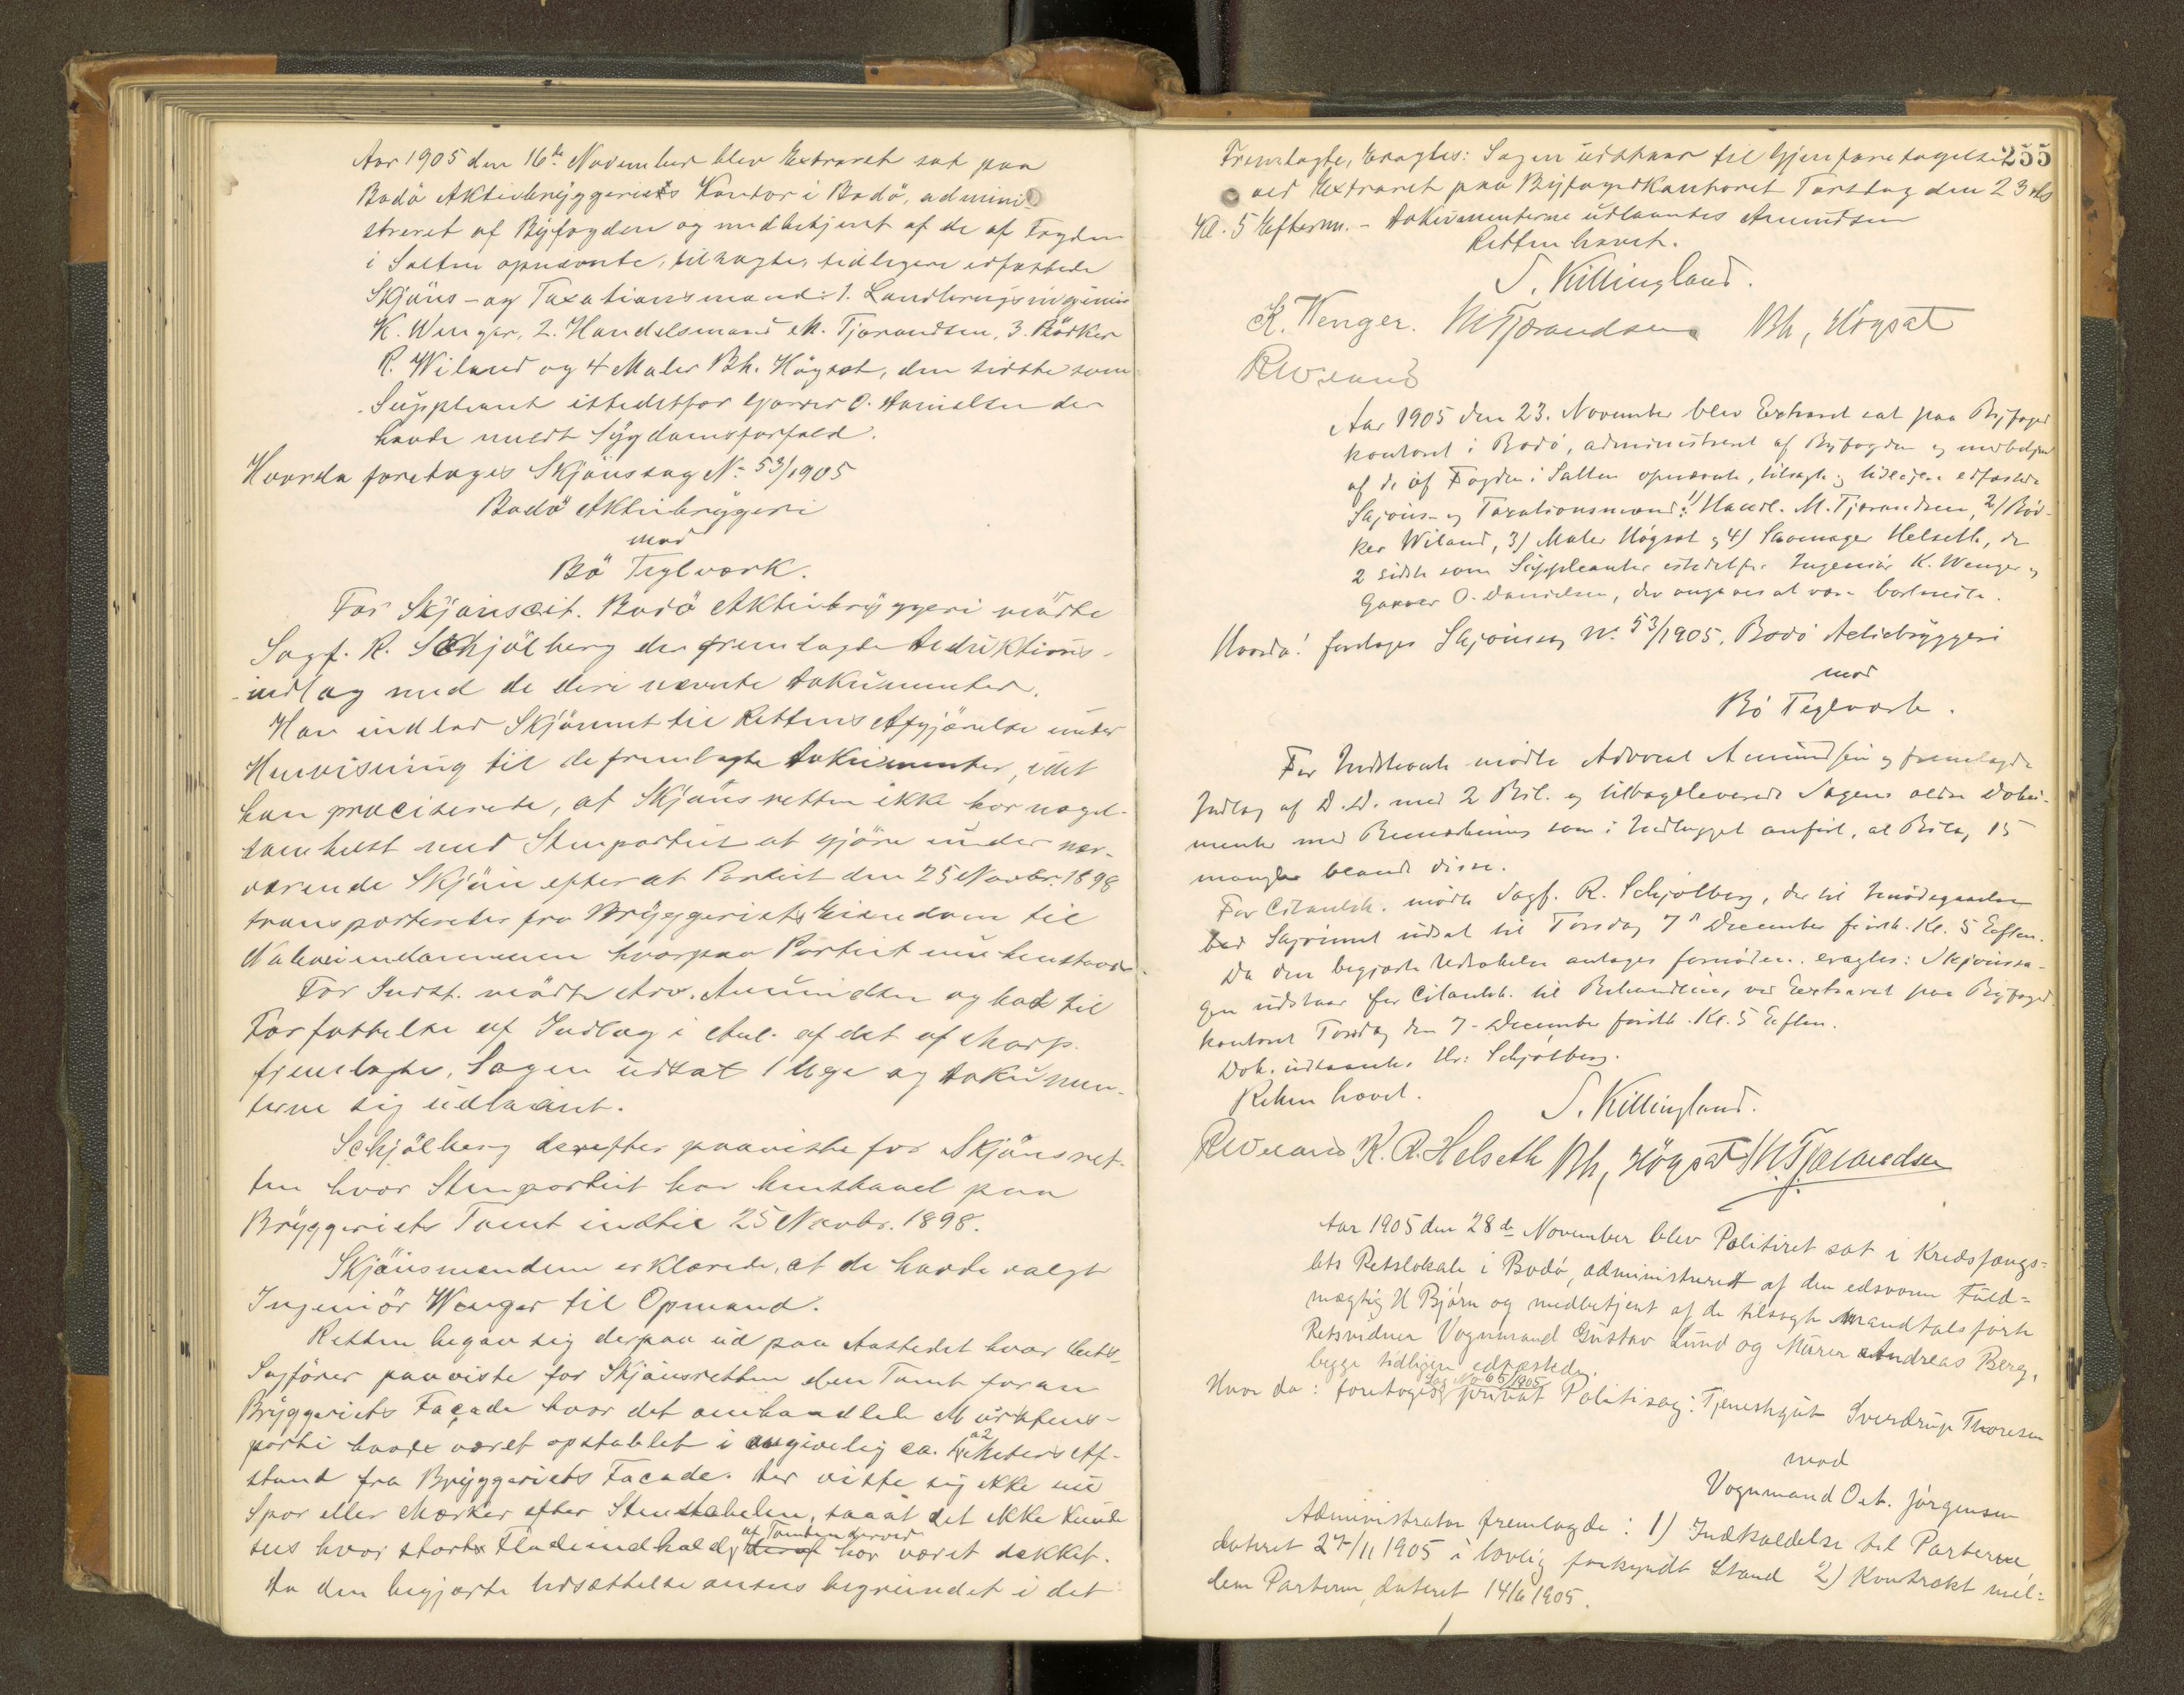 Aar 1905 den 16de November blev Extraret sat paa
Bodö Aktiebryggeriets Kontor i Bodö, admini-
streret af Byfogden og medbetjent af de af Fogden
i Salten opnævnte, tilsagte, tidligere edfæstede
Skjöns- og Taxationsmænd: 1. Landbrugsingeniör
K. Wenger, 2. Handelsmand M. Tjærandsen, 3. Bödker
R. Wiland og 4 Maler Bh. Högsæt, den sidste som
Suppleant istedetfor Garver O. Danielsen der
havde meldt Sygdomsforfald.
Hvorda foretages Skjönssag No 53/1905
Bodö Aktiebryggeri
mod
Bö Teglværk.
For Skjönscit. Bodö Aktiebryggeri mödte
Sagf. R. Schjölberg der fremlagte Deduktions-
indlæg med de deri nævnte Dokumenter.
Han indlod Skjönnet til Rettens Afgjörelse under
Henvisning til de fremlagte Dokumenter, idet
han præciserede, at Skjönsretten ikke har noget-
somhelst med Stenpartiet at gjöre under nær-
værende Skjön efter at Partiet den 25 Novbr. 1898
transporteredes fra Bryggeriets Eiendom til
Naboeiendommen hvorpaa Partiet nu henstaar.
For Indst. mödte Adv. Amundsen og bad til
Forfattelse af Indlæg i Anl. af det af Modp.
fremlagte, Sagen udsat 1 Uge og Dokumen-
terne sig udlaant.
Schjölberg derefter paaviste for Skjönsret-
ten hvor Stenpartiet har henstaaet paa
Bryggeriets Tomt indtil 25 Novbr. 1898.
Skjönsmændene erklærede, at de havde valgt
Ingeniör Wenger til Opmand.
Retten begav sig derpaa ud paa Aastedet hvor Cits.
Sagförer paaviste for Skjönsretten den Tomt foran
Bryggeriets Façade hvor det omhandlede Murstens-
parti havde været opstablet i angivelig ca. 2 Meters Af-
stand fra Bryggeriets Facade. Der viste sig ikke nu
Spor eller Mærker efter Stenstabelen, saaat det ikke kunde
sees hvor stort Fladeindhold af Tomten derved har været dækket.
Da den begjærte Udsættelse ansees begrundet i det
255
Fremlagte, Eragtes: Sagen udstaar til Gjenforetagelse
ved Extraret paa Byfogedkontoret Torsdag den 23 ds
Kl. 5 Efterm. - Dokumenterne udlaantes Amundsen
Retten hævet.
S. Killingland.
K. Wenger. M Tjærandsen Bh, Högsæt
R Wiland
Aar 1905 den 23. November blev Extraret sat paa Byfoged
kontoret i Bodö, administreret af Byfogden og medbetjent
af de af Fogden i Salten opnævnte, tilsagte og tidligere edfæstede
Skjöns- og Taxationsmænd: 1/ Handl. M. Tjærandsen, 2/ Böd-
ker Wiland, 3) Maler Högsæt og 4) Skomager Helseth, de
2 sidste som Suppleanter istedetfor Ingeniör K. Wenger og
Garver O. Danielsen, der angaves at være bortreiste.
Hvorda: foretages Skjönssag No. 53/1905. Bodö Actiebryggeri
mod
Bö Teglværk.
For Indstevnte mödte Advocat Amundsen og fremlagde
Indlæg af D.D. med 2 Bil. og tilbageleverede Sagens ældre Doku-
menter med Bemærkning som i Indlægget anfört, at Bilag 15
mangler blandt disse.
For Citantsk. mödte Sagf. R. Schjölberg, der til Imödegaaelse
bad Skjönnet udsat til Torsdag 7de December förstk. Kl. 5 Eften.
Da den begjærte Udsættelse antages fornöden, eragtes: Skjönssa-
gen udstaar for Citantsk. til Behandling ved Extraret paa Byfoged
kontoret Torsdag den 7 December förstk. Kl. 5 Eften.
Dok. udlaantes Hr: Schjölberg.
Retten hævet.
S. Killingland.
R Wiland K. R. Helseth Bh, Högsæt M. Tjærandsen
Aar 1905 den 28de November blev Politiret sat i Kredsfængs-
lets Retslokale i Bodö, administreret af den edsvorne Fuld-
mægtig H Björn og medbetjent af de tilsagte mandtalsförte
Retsvidner Vognmand Gustav Lund og Murer Andreas Berg,
begge tidligere edfæstede.
Hvor da: foretoges Sag No 65/1905 privat Politisag: Tjenestegut Sverdrup Thoresen
mod
Vognmand Oct. Jörgensen
Administrator fremlagde: 1) Indkaldelse til Parterne
dateret 27/11 1905 i lovlig forkyndt Stand 2) Kontrakt mel-
lem Parterne, dateret 14/6 1905.